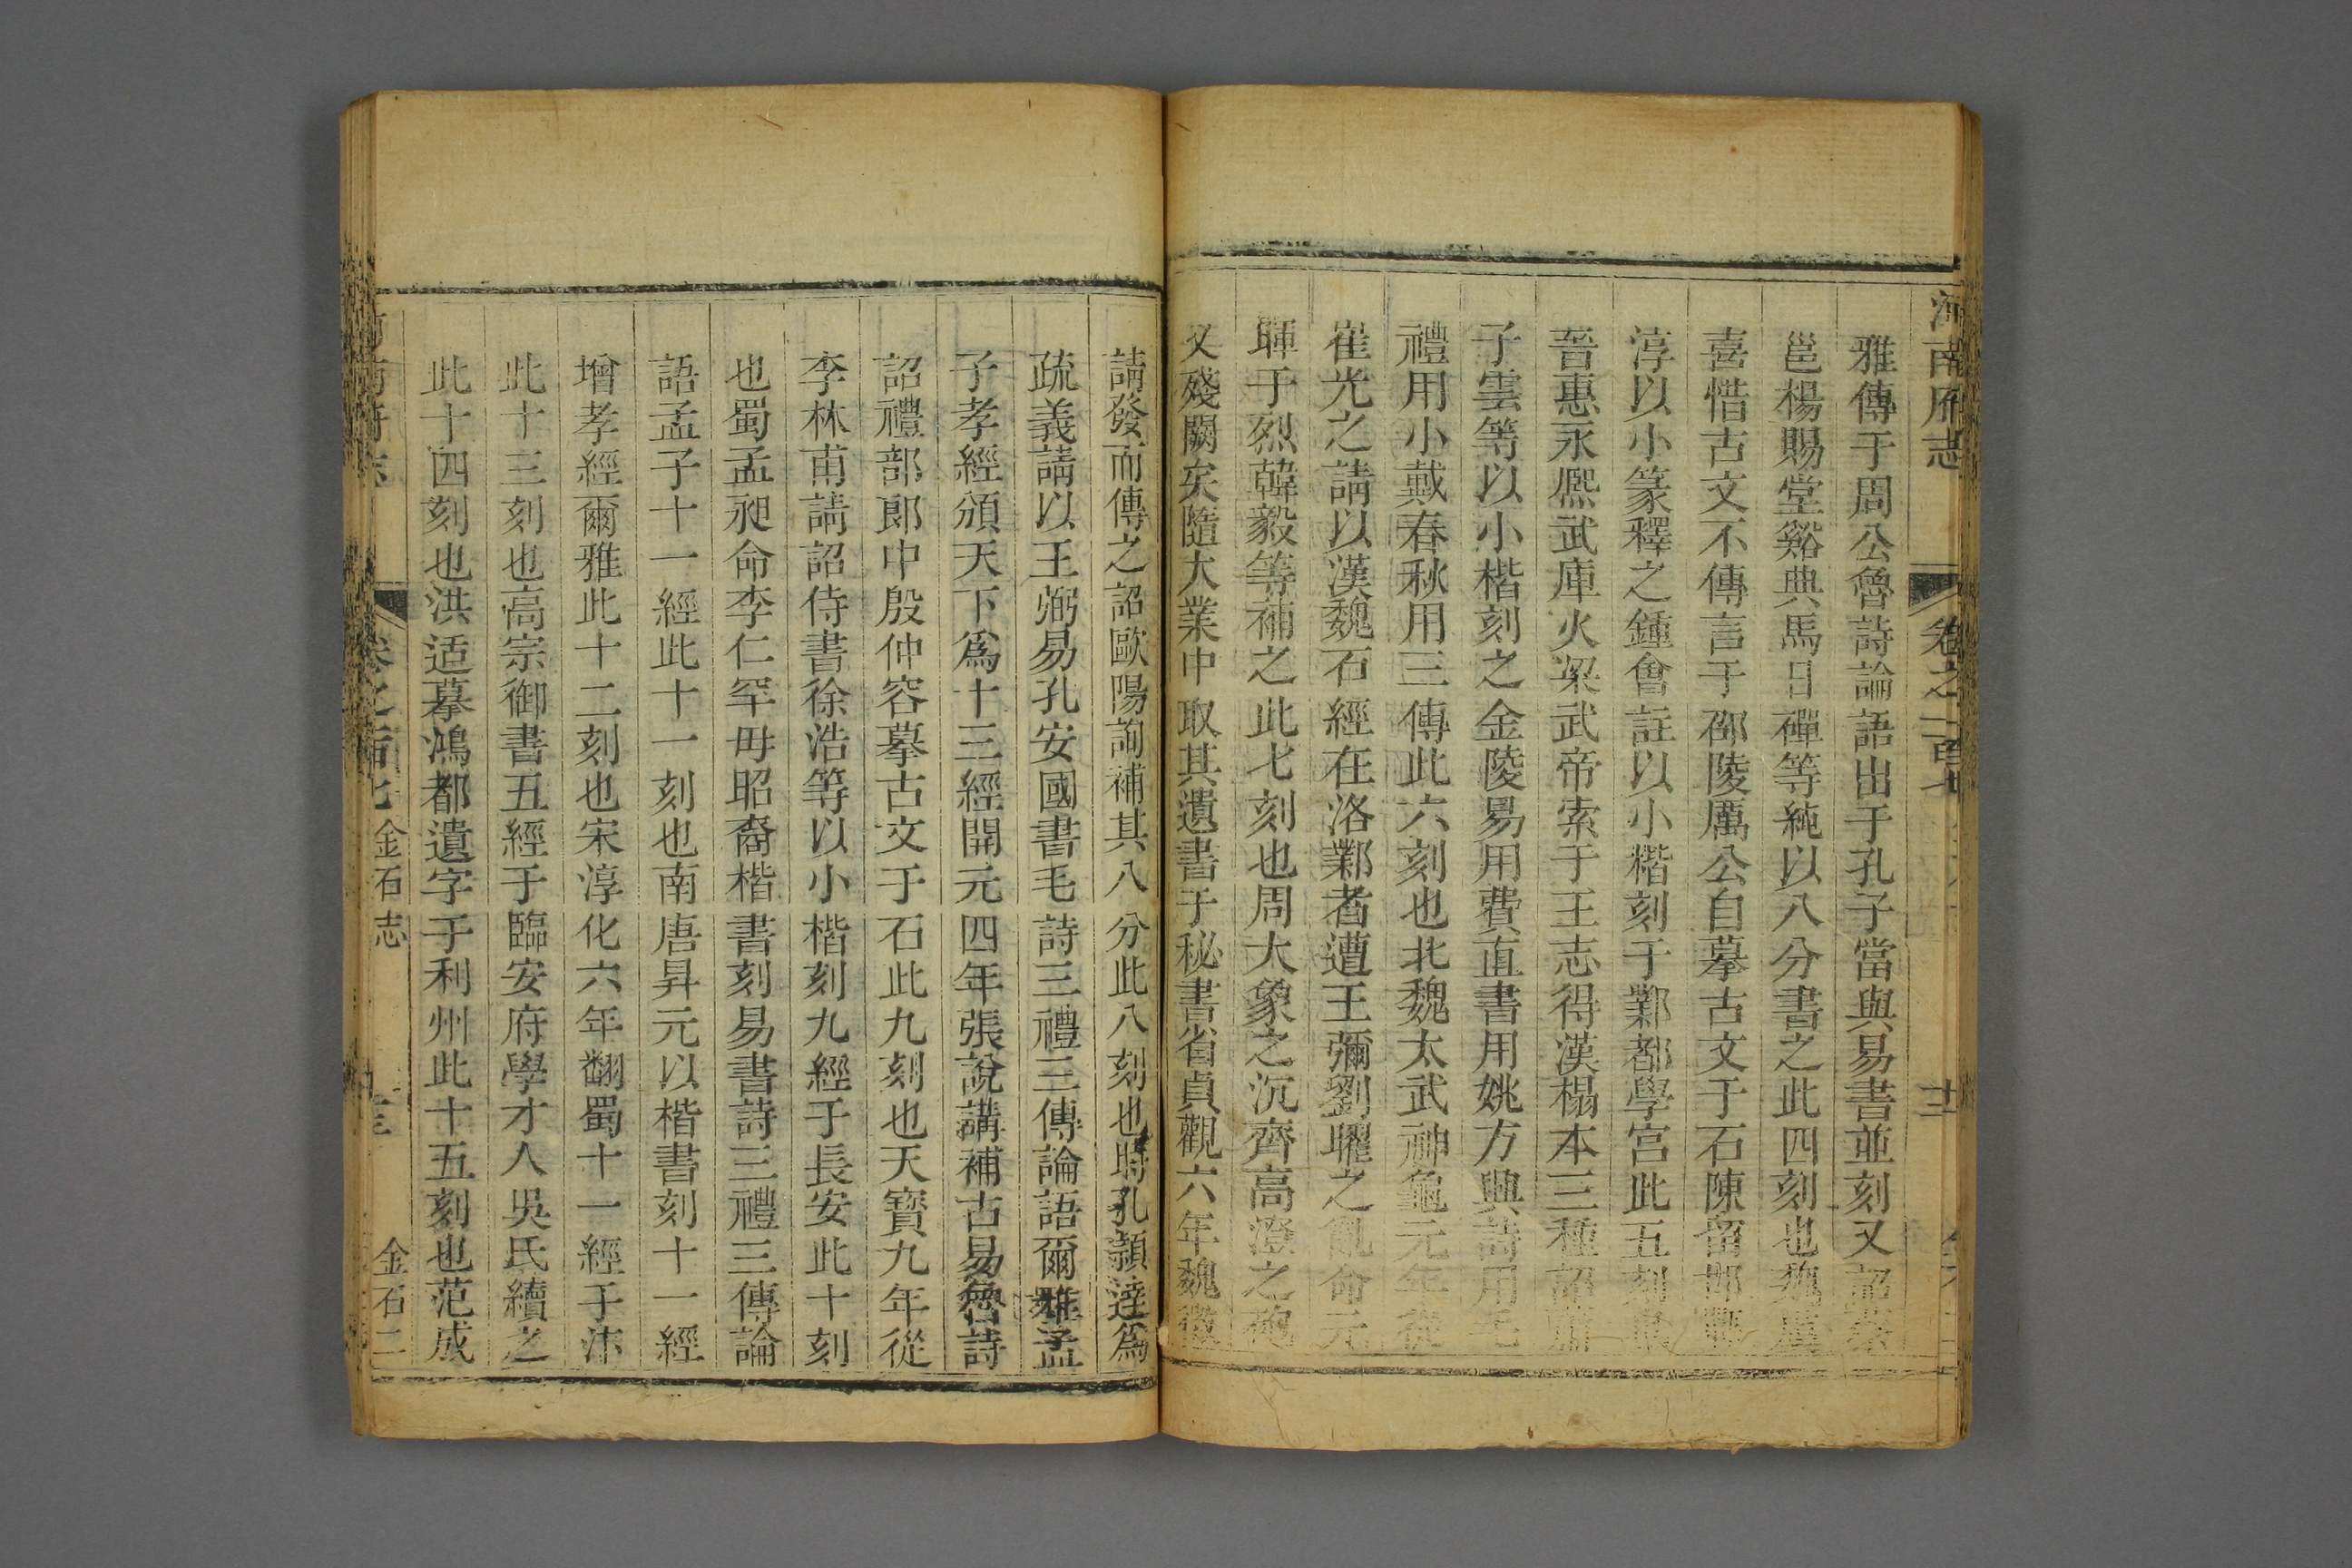 河南府志 卷之一百七
雅傳于周公魯詩論語出于孔子當與易書並刻又詔蔡
邕楊賜堂谿典馬日磾等純以八分書之此四刻也魏虞
喜惜古文不傳言于邵陵厲公自摹古文于石陳留邯鄲
淳以小篆釋之鍾會註以小楷刻于鄴都學宮此五刻
晉惠永熈武庫火梁武帝索于王志得漢榻本三種詔蕭
子雲等以小楷刻之金陵易用費直書用姚方興詩用毛
禮用小戴春秋用三傳此六刻也北魏太武神龜元年從
崔光之請以漢魏石經在洛鄴者遭王彌劉曜之亂命元
暉于烈韓毅等補之此七刻也周大象之沉齊高澄之砲
又殘闕矣隨大業中取其遺書于秘書省貞觀六年魏徵
請發而傳之詔歐陽詢補其八分此八刻也時孔頴達爲
疏義請以王弼易孔安國書毛詩三禮三傳論語爾雅孟
子孝經頒天下爲十三經開元四年張說講補古易魯詩
詔禮部郎中殷仲容摹古文于石此九刻也天寳九年從
李林甫請詔侍書徐浩等以小楷刻九經于長安此十刻
也蜀孟昶命李仁罕毋昭裔楷書刻易書詩三禮三傳論
語孟子十一經此十一刻也南唐昇元以楷書刻十一經
增孝經爾雅此十二刻也宋淳化六年翻蜀十一經于汴
此十三刻也高宗御書五經于臨安府學才人吳氏續之
此十四刻也洪适摹鴻都遺字于利州此十五刻也范成
卷之一百七 金石志 金石二